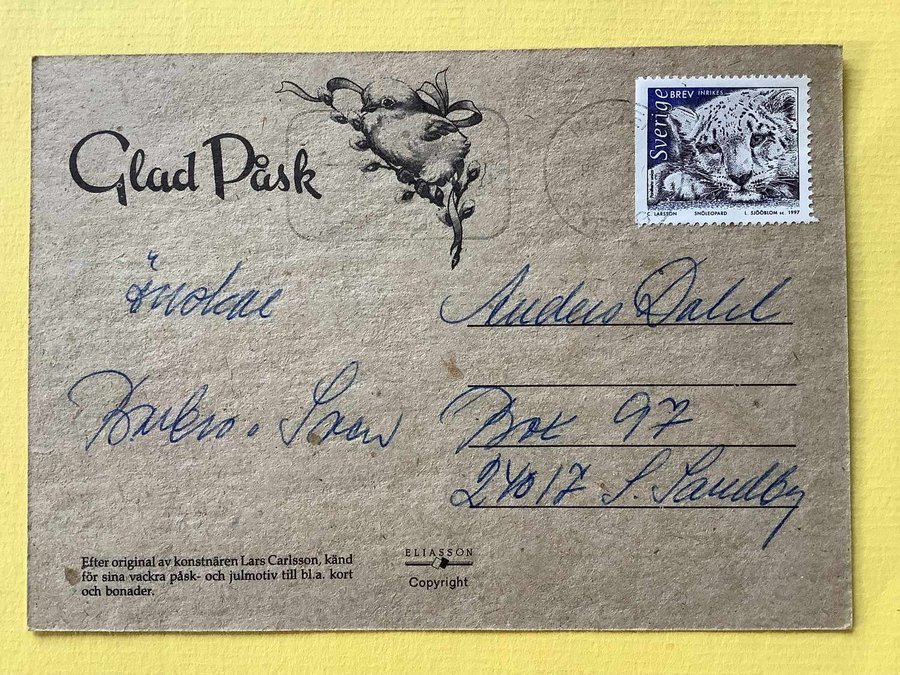 Glad Påsk
Sverige
BREV INRIKES
C. LARSSON SNÖLEOPARD L. SJÖÖBLOM sc. 1997
önskar
Barbro o Sven
Anders Dahl
Box 97
24017 S. Sandby
Efter original av konstnären Lars Carlsson, känd
för sina vackra påsk- och julmotiv till bl.a. kort
och bonader.
ELIASSON
Copyright